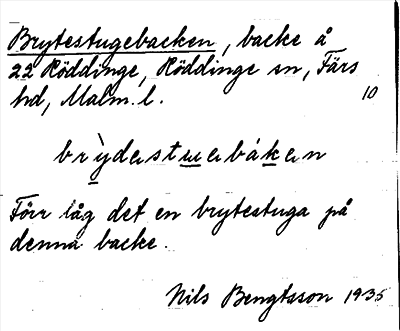 Brytestugebacken, backe å
22 Röddinge, Röddinge sn, Färs
hd, Malm. l.
10
brỳdestuebáken
Förr låg det en brytestuga på
denna backe.
Nils Bengtsson 1935